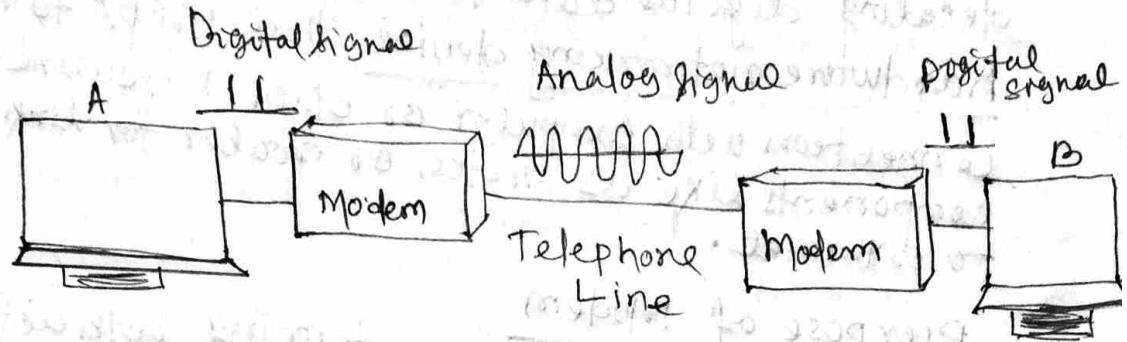 Digital signal
A
Modem
Analog signal
Telephone
Line
Modem
Dogital
signal
B